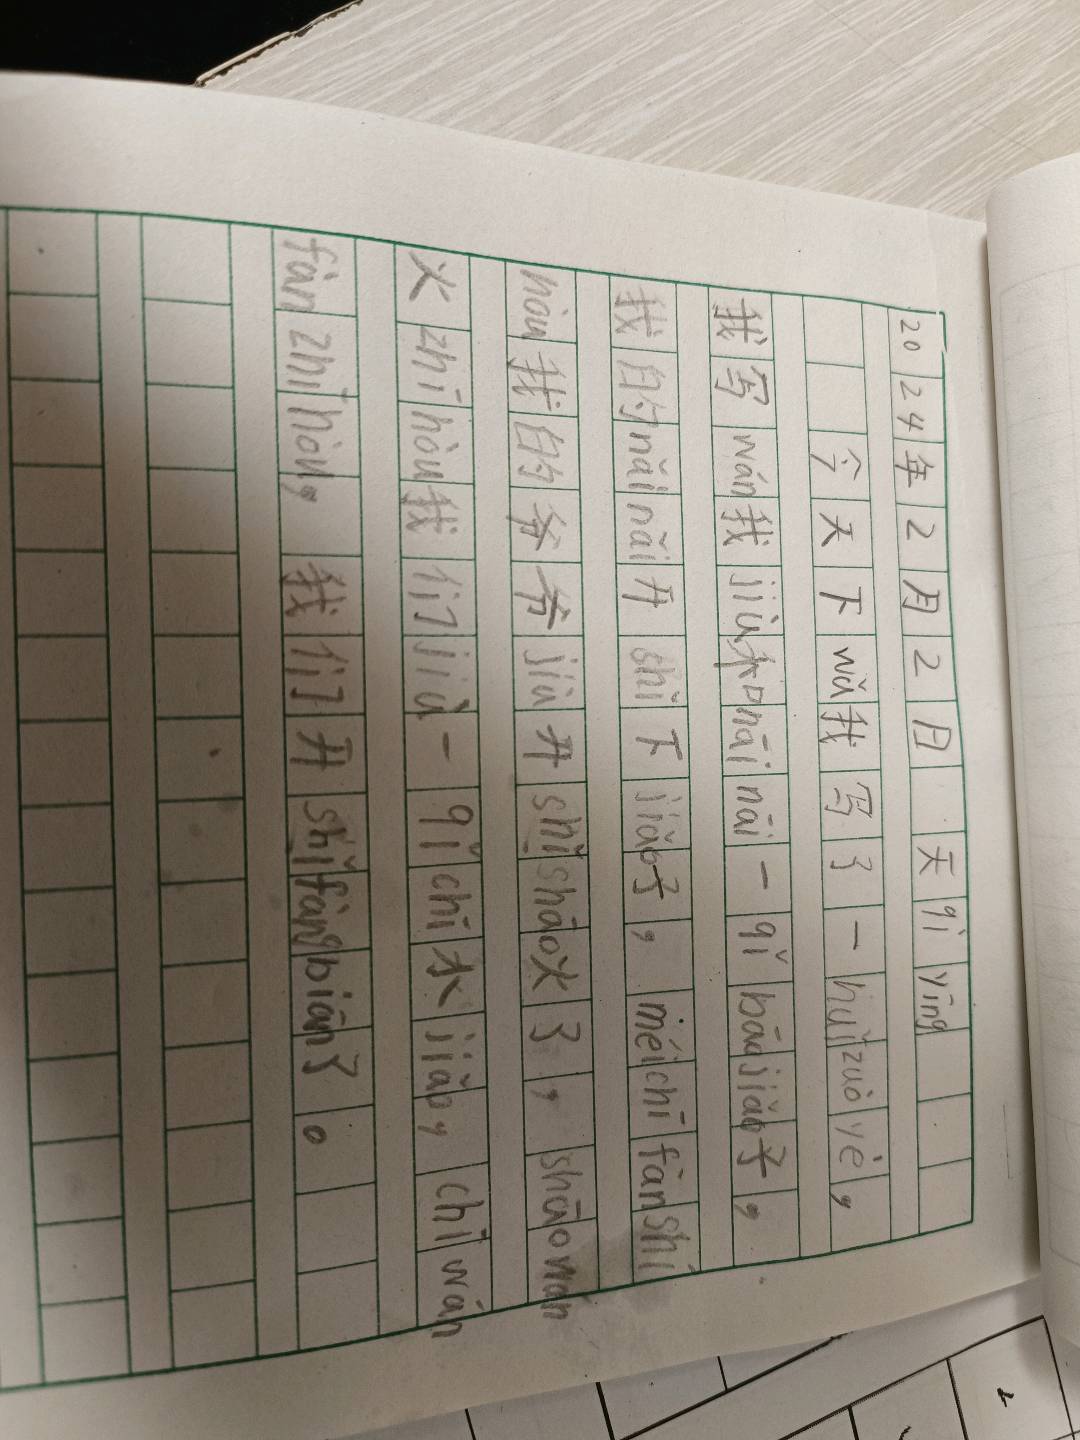 2024年2月2日 天qì yīng
今天下wǔ我写了一huǐzuò yè，
我写wán我jiù和nāi nāi一qǐ bāo jiǎo子，
我的nǎi nǎi开shǐ下jiǎo子，méi chī fàn shí
hòu我的爷爷jiù开shǐ shāo火了，shāo wán
火zhī hòu我们jiù一qǐ chī水jiǎo，chī wán
fàn zhī hòu，我们开shǐ fàng biān了。